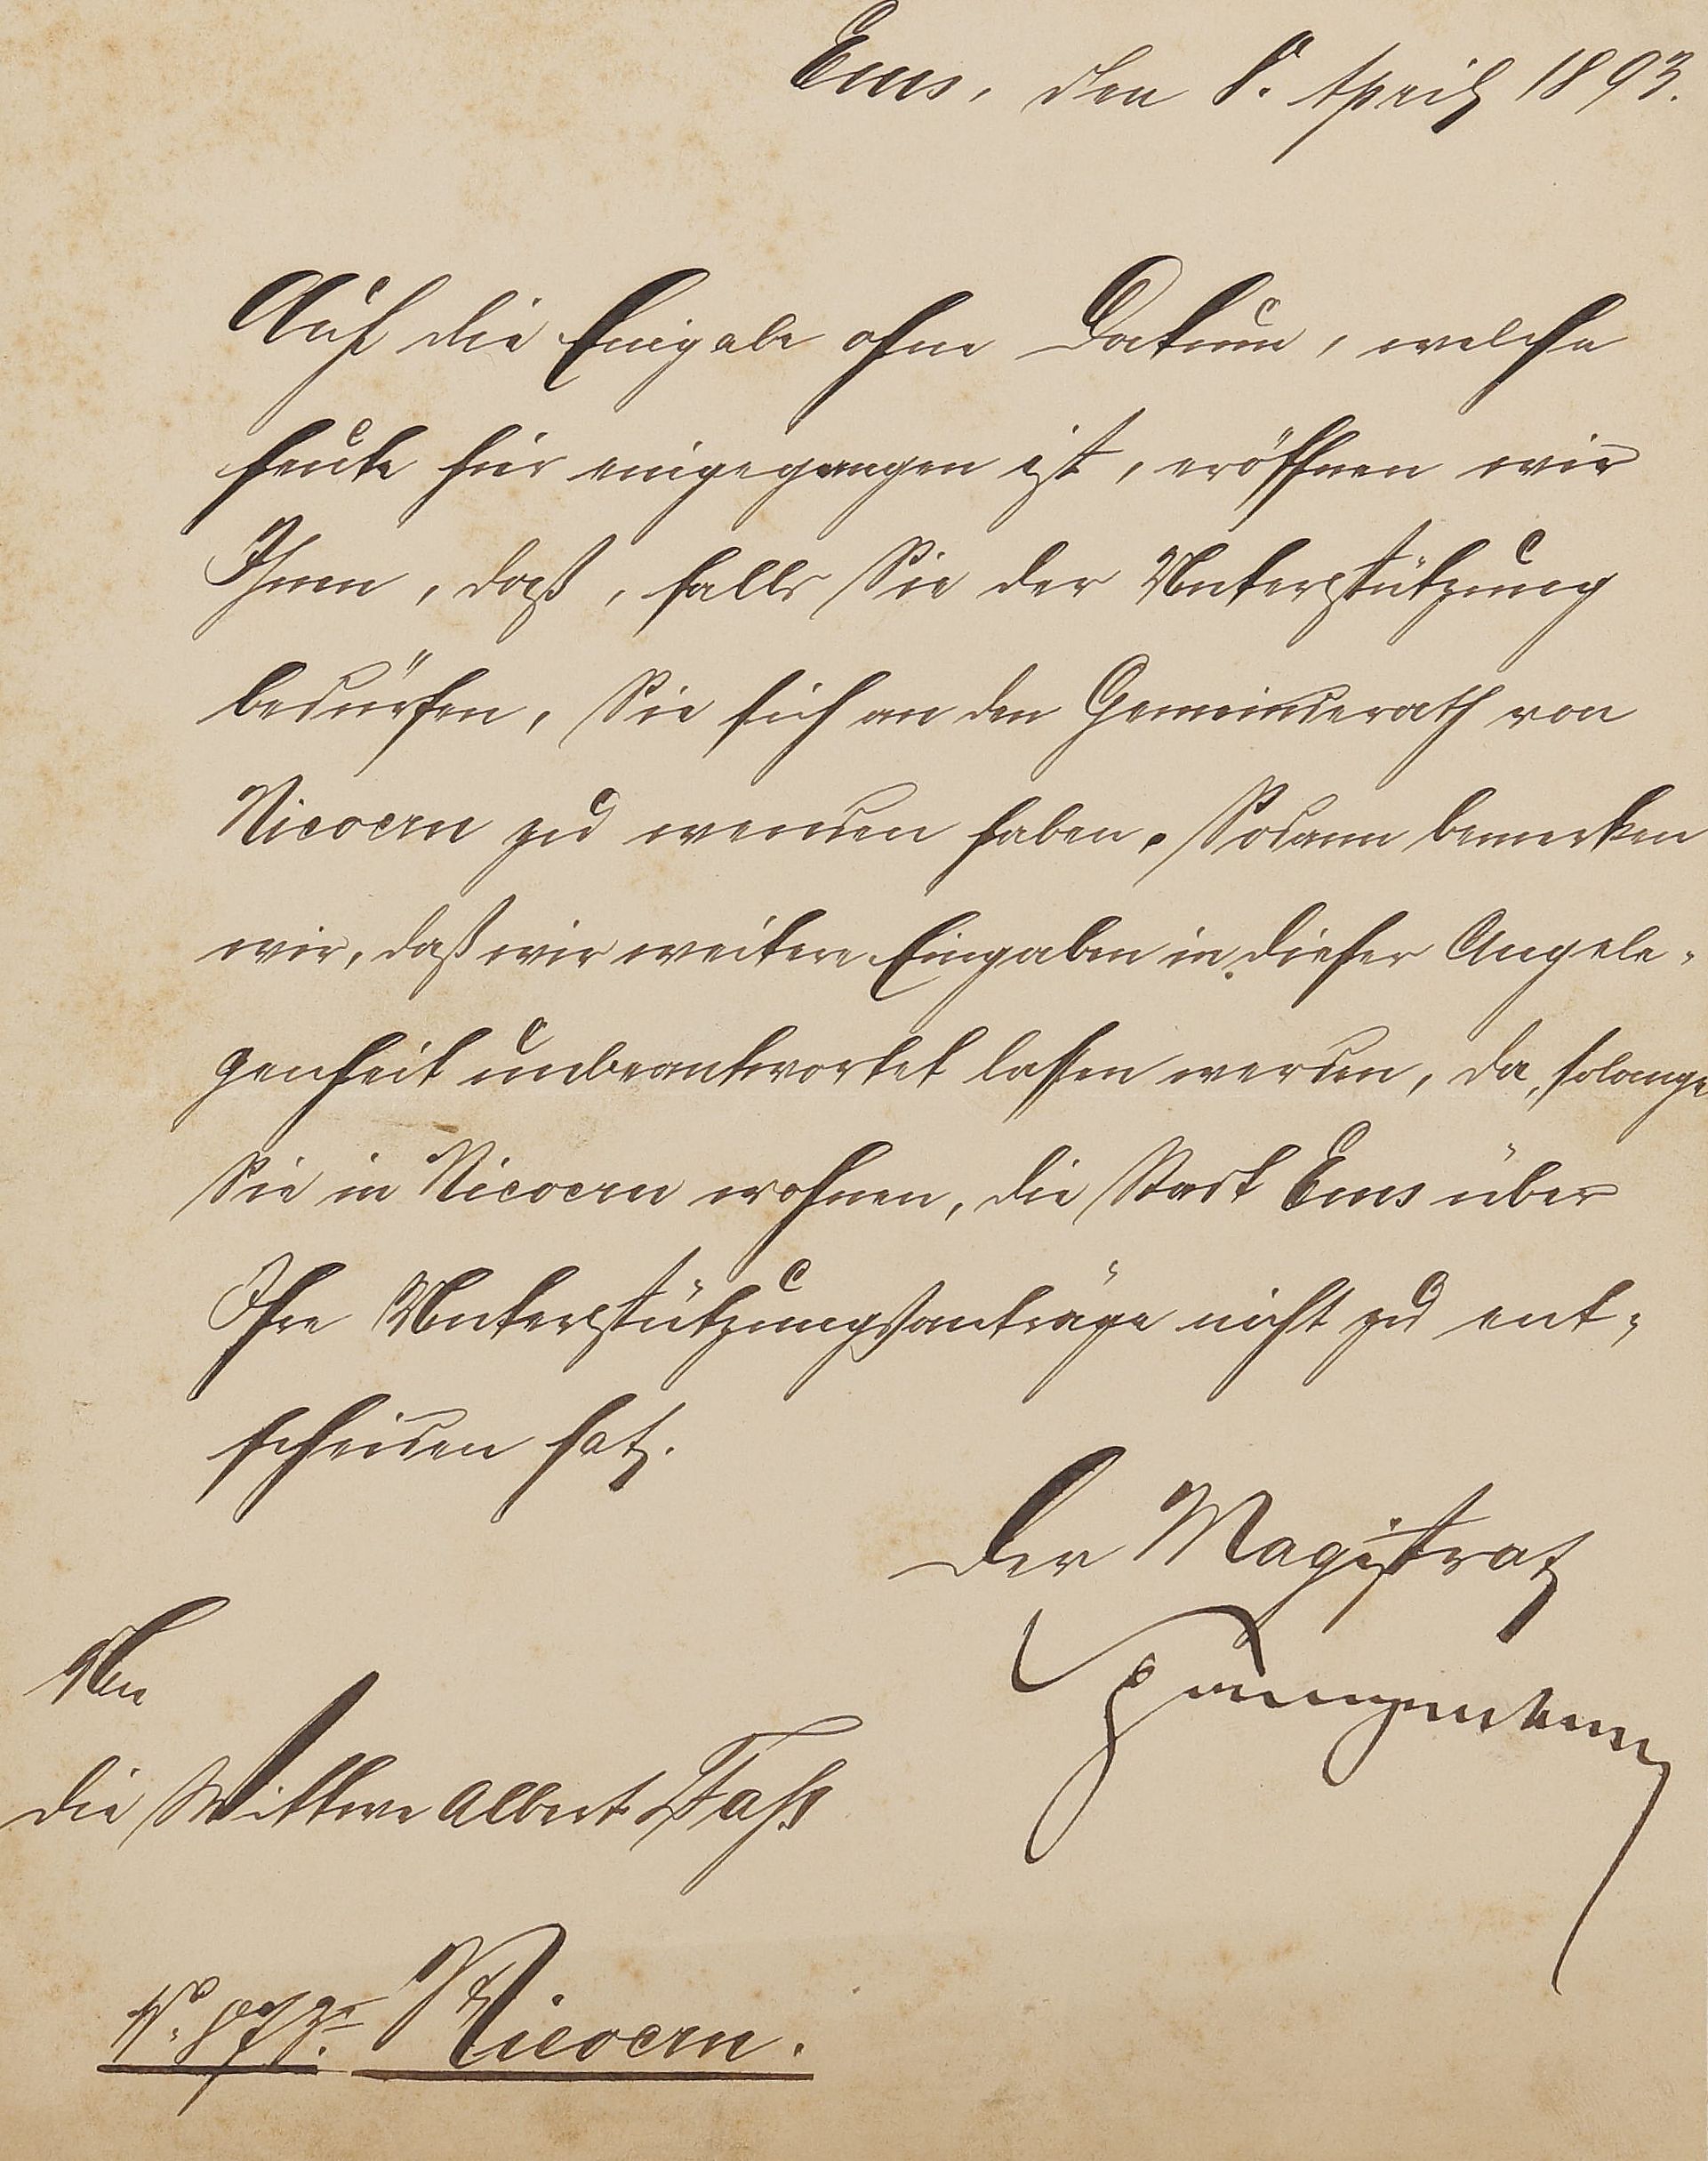 Ems, den 8. April 1893.
Auf die Eingabe ohne Datum, welche
heute hier eingegangen ist, eröffnen wir
Ihnen, daß, falls Sie der Unterstützung
bedürfen, Sie sich an den Gemeinderath von
Nievern zu wenden haben. Sodann bemerken
wir, daß wir weitere Eingaben in dieser Angele-
genheit unbeantwortet lassen werden, da, solange
Sie in Nievern wohnen, die Stadt Ems über
Ihre Unterstützungsanträge nicht zu ent-
scheiden hat.
Der Magistrat
An
die Wittwe Albert
Nievern.